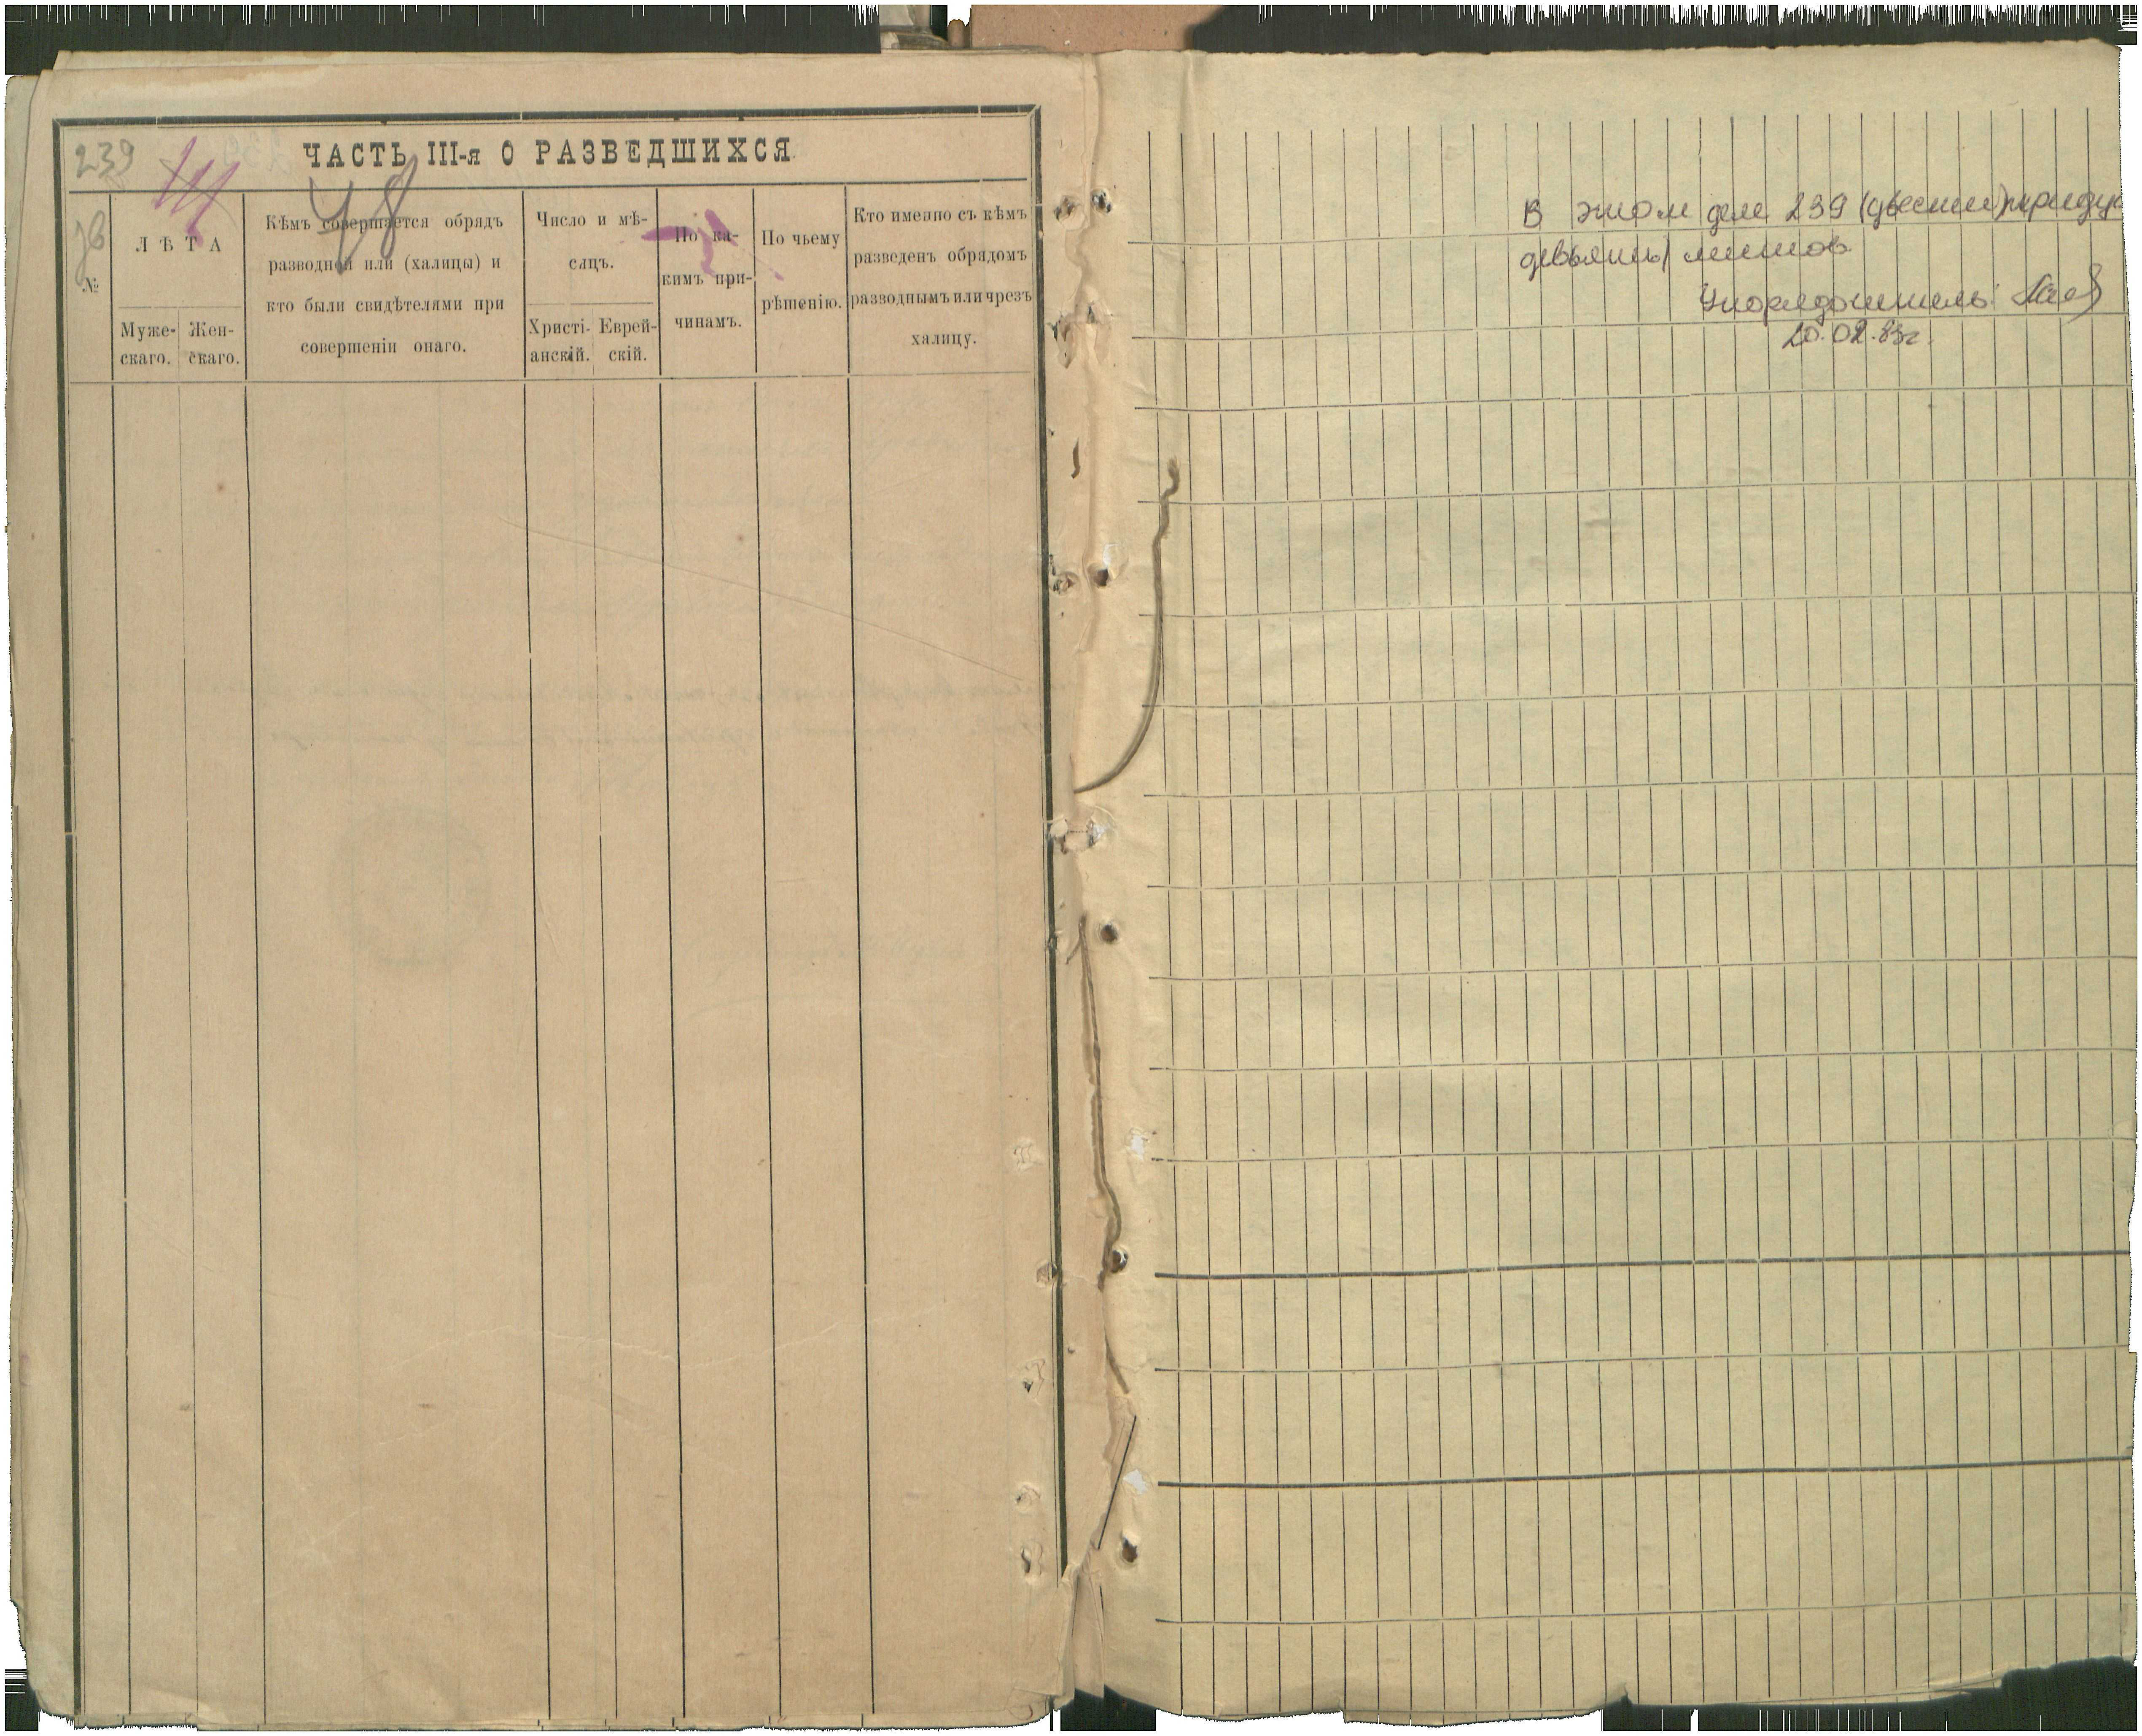 239
ЧАСТЬ III-я О РАЗВЕДШИХСЯ
48
№
ЛѢТА
Муже-
скаго.
Жен-
скаго.
Кѣмъ совершается обрядъ
разводной или (халицы) и
кто были свидѣтелями при
совершеніи онаго.
Число и мѣ-
сяцъ.
Христі-
анскій.
Еврей-
скій.
По ка-
кимъ при-
чинамъ.
По чьему
рѣшенію.
Кто именно съ кѣмъ
разведенъ обрядомъ
разводнымъ или чрезъ
халицу.
В этом деле 239 (двести тридца
девьять) листов
Упорядочитель:
20.02.83г.